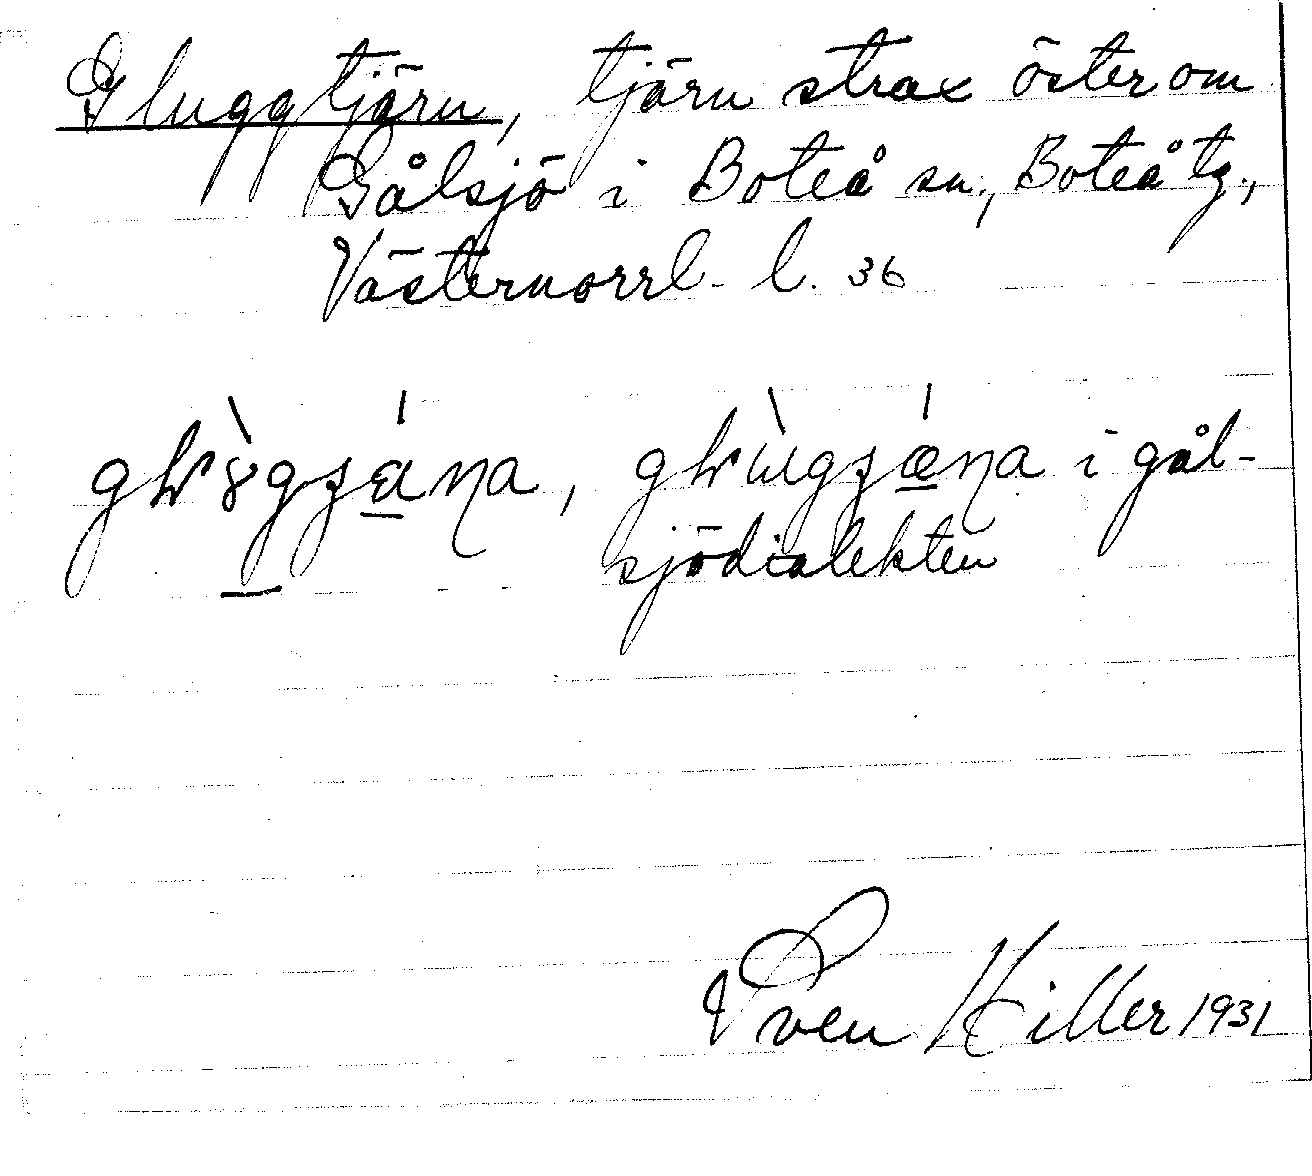 Gluggtjärn, tjärn strax öster om
Gålsjö i Boteå sn., Boteå tg.,
Västernorrl. l. 36
i gål-
sjödialekten
Sven Hiller 1931